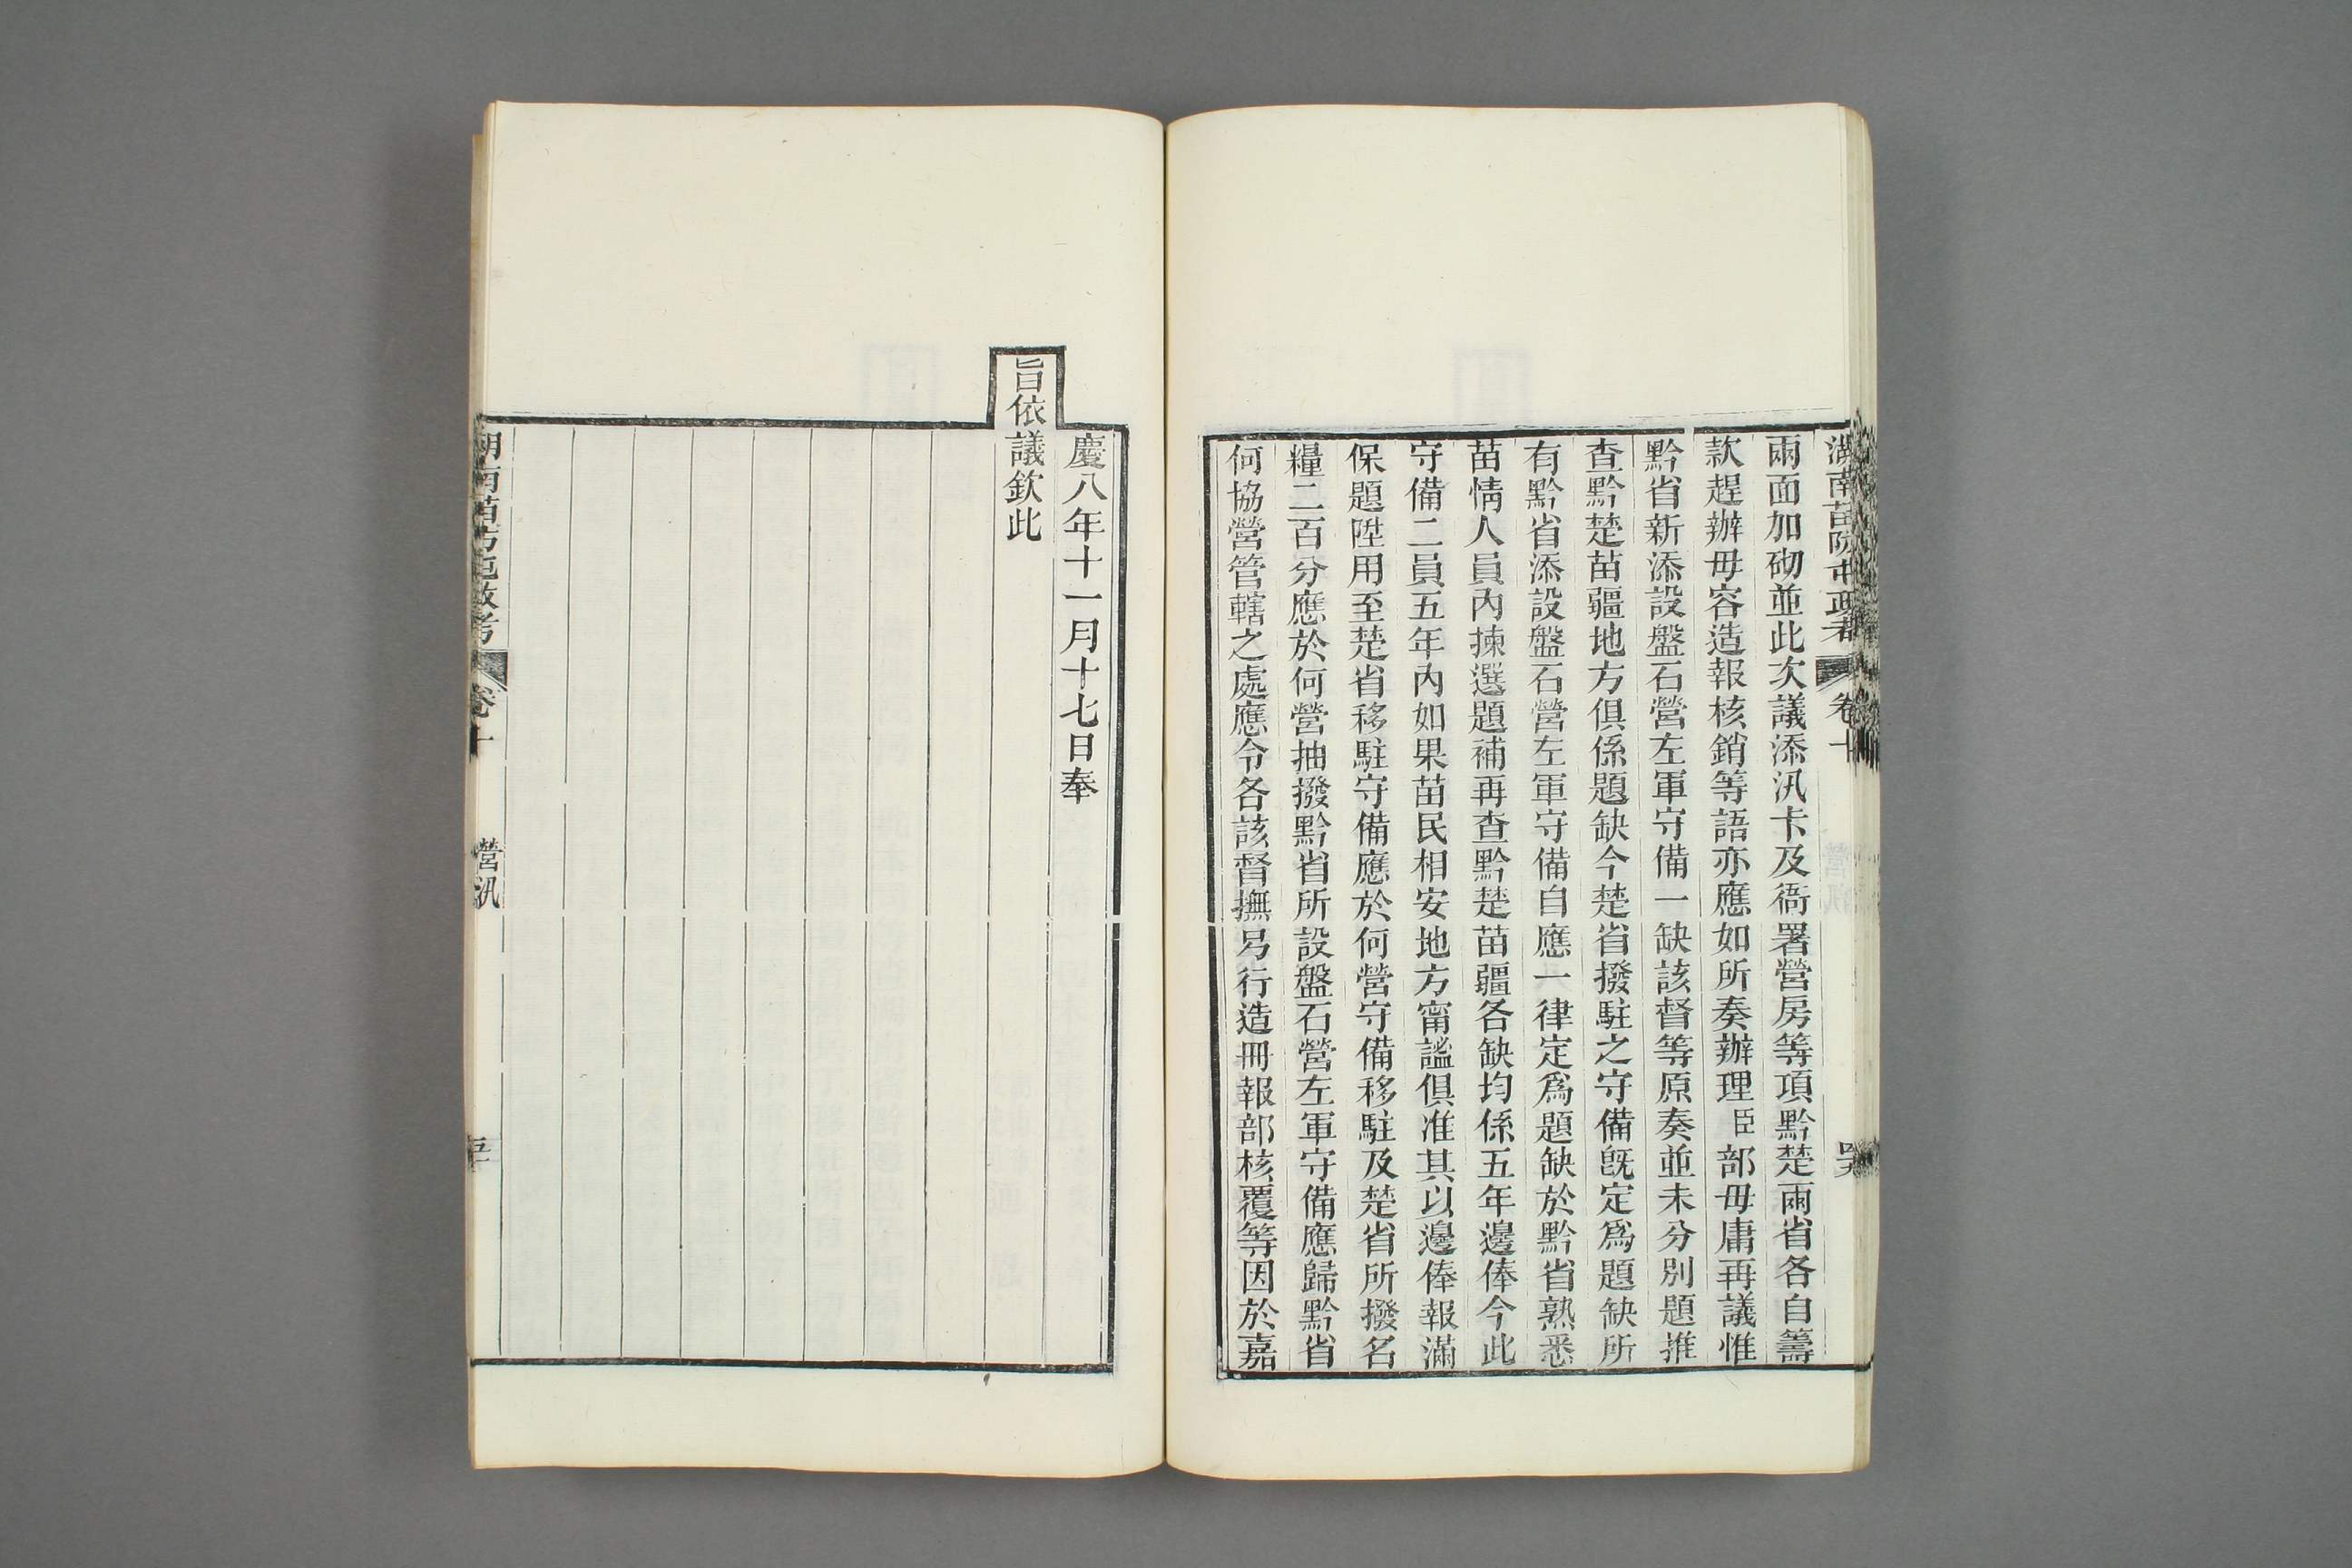 兩面加砌並此次議添汛卡及衙署營房等項黔楚兩省各自籌
款趕辦毋容造報核銷等語亦應如所奏辦理臣部毋庸再議惟
黔省新添設盤石營左軍守備一缺該督等原奏並未分別題推
查黔楚苗疆地方俱係題缺今楚省撥駐之守備旣定爲題缺所
有黔省添設盤石營左軍守備自應一律定爲題缺於黔省熟悉
苗情人員內揀選題補再查黔楚苗疆各缺均係五年邊俸今此
守備二員五年內如果苗民相安地方甯謐俱准其以邊俸報滿
保題陞用至楚省移駐守備應於何營守備移駐及楚省所撥名
糧二百分應於何營抽撥黔省所設盤石營左軍守備應歸黔省
何協營管轄之處應令各該督撫另行造冊報部核覆等因於嘉
慶八年十一月十七日奉
旨依議欽此
湖南苗防屯政考
卷十
營汛